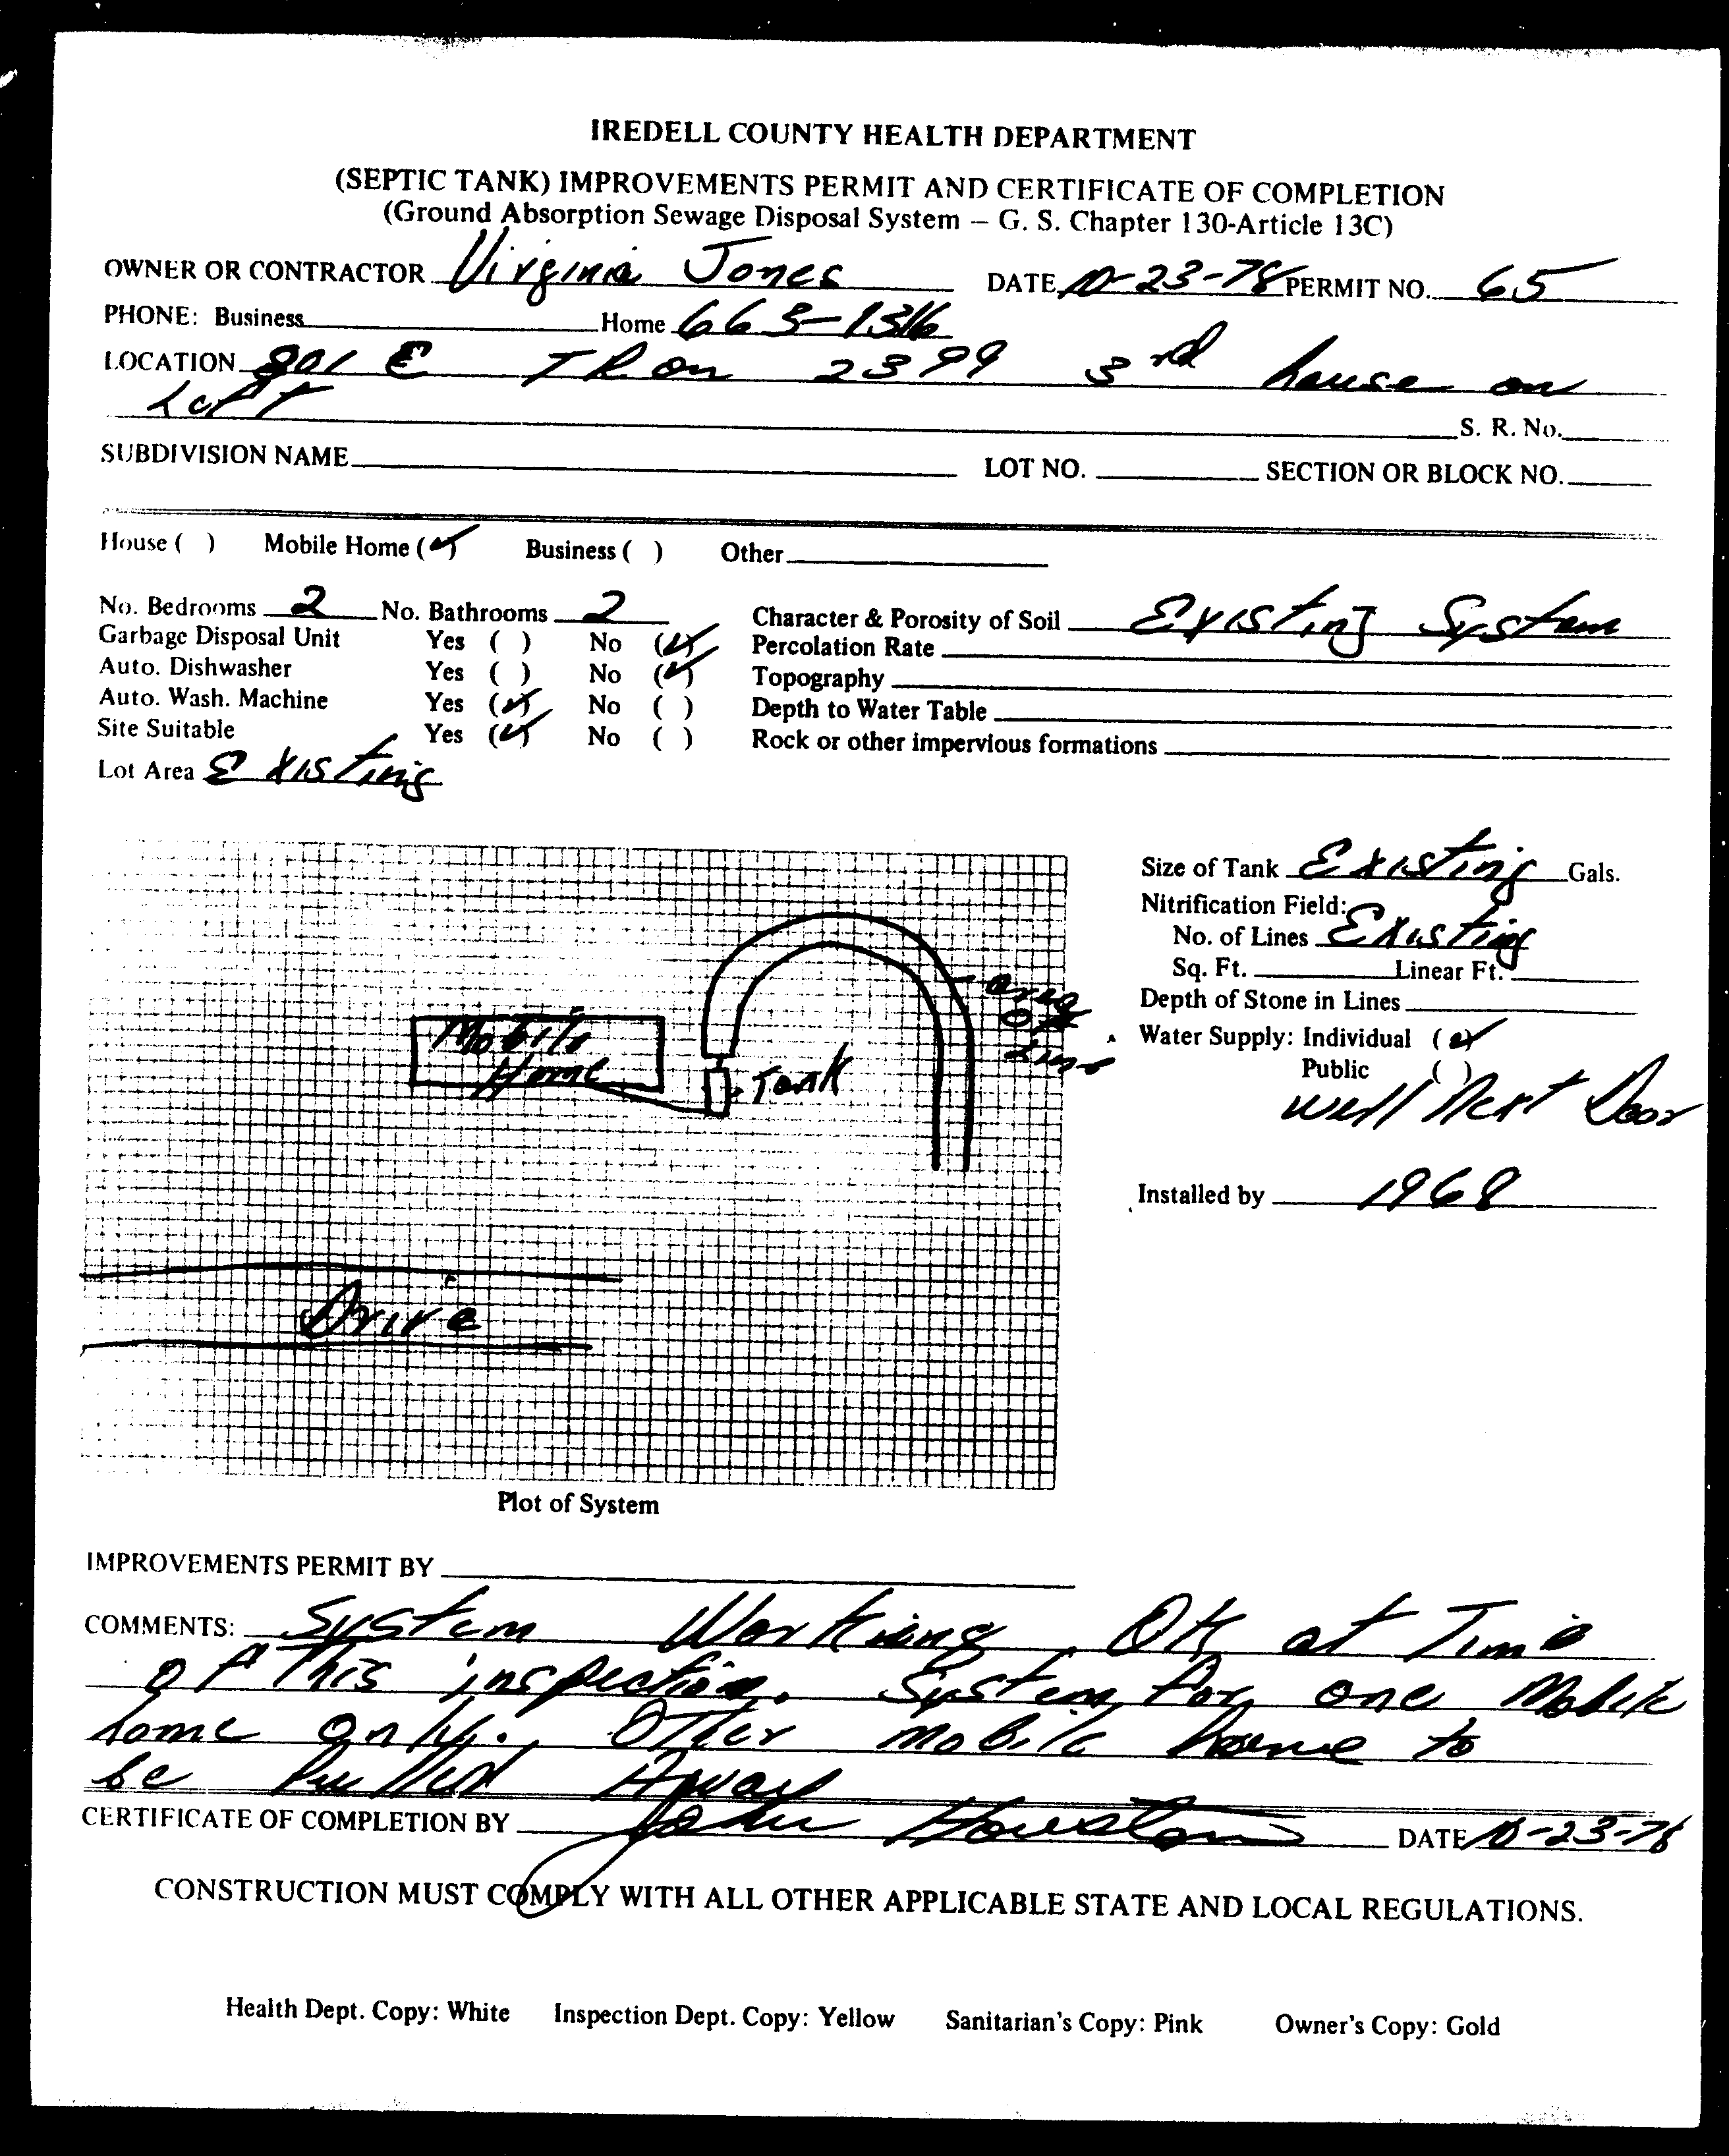 IREDELL COUNTY HEALTH DEPARTMENT
(SEPTIC TANK) IMPROVEMENTS PERMIT AND CERTIFICATE OF COMPLETION
(Ground Absorption Sewage Disposal System – G. S. Chapter 130-Article 13C)
OWNER OR CONTRACTOR Virginia Jones DATE 10-23-78 PERMIT NO. 65
PHONE: Business Home 663-1316
LOCATION 801 E TR on 2399 3rd house on
Left S. R. No.
SUBDIVISION NAME LOT NO. SECTION OR BLOCK NO.
House ( ) Mobile Home (✓) Business ( ) Other
No. Bedrooms 2 No. Bathrooms 2 Character & Porosity of Soil Existing System
Garbage Disposal Unit Yes ( ) No (✓) Percolation Rate
Auto. Dishwasher Yes ( ) No (✓) Topography
Auto. Wash. Machine Yes (✓) No ( ) Depth to Water Table
Site Suitable Yes (✓) No ( ) Rock or other impervious formations
Lot Area Existing
Size of Tank Existing Gals.
Nitrification Field:
No. of Lines Existing
Sq. Ft. Linear Ft.
Depth of Stone in Lines
Water Supply: Individual (✓)
Public ( )
Well Next Door
Installed by 1968
area
of
Line
Mobile
Home
Tank
Drive
Plot of System
IMPROVEMENTS PERMIT BY
COMMENTS: System Working OK at Time
of This inspection. System for one Mobile
home only. Other mobile home to
be Pulled Away
CERTIFICATE OF COMPLETION BY John Houston DATE 10-23-78
CONSTRUCTION MUST COMPLY WITH ALL OTHER APPLICABLE STATE AND LOCAL REGULATIONS.
Health Dept. Copy: White Inspection Dept. Copy: Yellow Sanitarian's Copy: Pink Owner's Copy: Gold